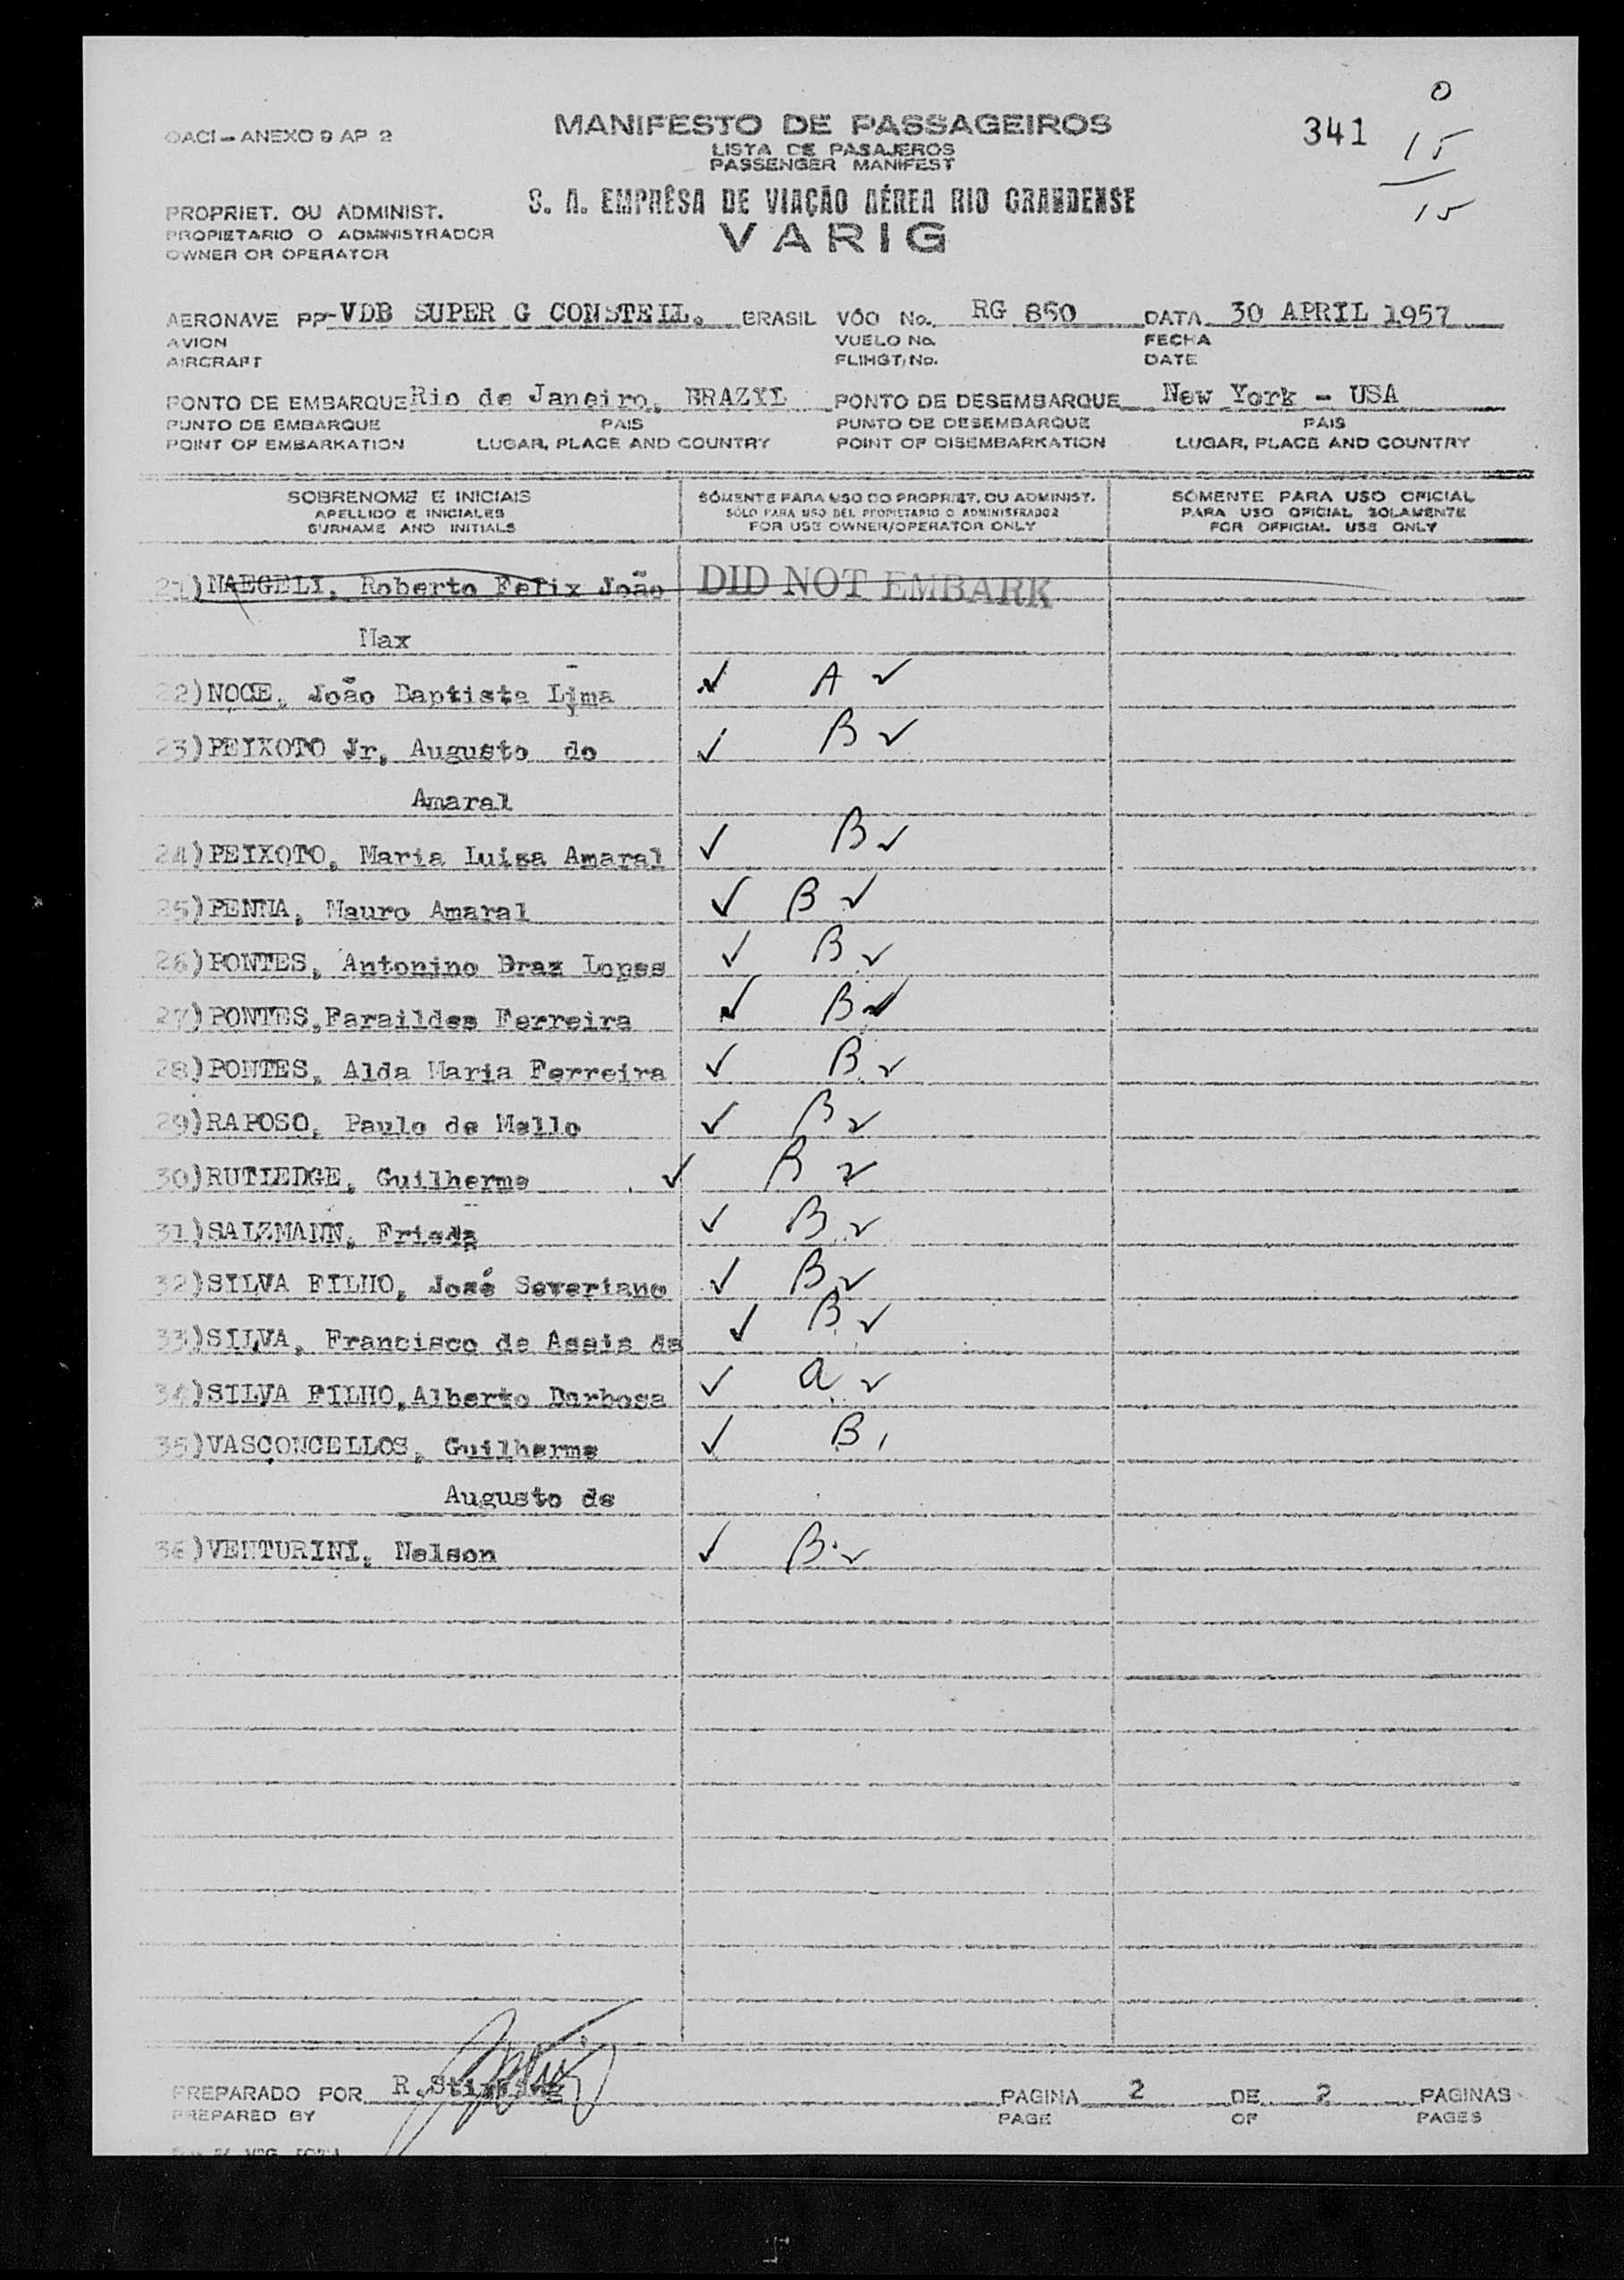 O
OACI - ANEXO 9 AP 2
MANIFESTO DE PASSAGEIROS
341
15
LISTA DE PASAJEROS
PASSENGER MANIFEST
S. A. EMPRÊSA DE VIAÇÃO AÉREA RIO GRANDENSE
15
PROPRIET. OU ADMINIST.
PROPIETARIO O ADMINISTRADOR
VARIG
OWNER OR OPERATOR
AERONAVE PP-VDB SUPER G CONSTELL. BRASIL VÔO No. RG 850 DATA 30 APRIL 1957
AVION VUELO No. FECHA
AIRCRAFT FLIHGT, No. DATE
PONTO DE EMBARQUE Rio de Janeiro, BRAZIL PONTO DE DESEMBARQUE New York - USA
PUNTO DE EMBARQUE PAIS PUNTO DE DESEMBARQUE PAIS
POINT OF EMBARKATION LUGAR, PLACE AND COUNTRY POINT OF DISEMBARKATION LUGAR, PLACE AND COUNTRY
SOBRENOME E INICIAIS SÓMENTE PARA USO DO PROPRIET. OU ADMINIST. SÓMENTE PARA USO OFICIAL
APELLIDO E INICIALES SÓLO PARA USO DEL PROPIETARIO O ADMINISTRADOR PARA USO OFICIAL SOLAMENTE
SURNAME AND INITIALS FOR USE OWNER/OPERATOR ONLY FOR OFFICIAL USE ONLY
21)NAEGELI, Roberto Felix João DID NOT EMBARK
Max
22)NOCE, João Baptista Lima ✓ A ✓
23)PEIXOTO Jr, Augusto do ✓ B ✓
Amaral
24)PEIXOTO, Maria Luiza Amaral ✓ B ✓
25)PENNA, Mauro Amaral ✓ B ✓
26)PONTES, Antonino Braz Lopes ✓ B ✓
27)PONTES,Faraildes Ferreira ✓ B ✓
28)PONTES, Alda Maria Ferreira ✓ B ✓
29)RAPOSO, Paulo de Mello ✓ B ✓
30)RUTLEDGE, Guilherme ✓ B ✓
31)SALZMANN, Frieda ✓ B ✓
32)SILVA FILHO, José Severiano ✓ B ✓
33)SILVA, Francisco de Assis da ✓ B ✓
34)SILVA FILHO,Alberto Barbosa ✓ a ✓
35)VASCONCELLOS, Guilherme ✓ B
Augusto de
36)VENTURINI, Nelson ✓ B ✓
PREPARADO POR R. PAGINA 2 DE 2 PAGINAS
PREPARED BY PAGE OF PAGES